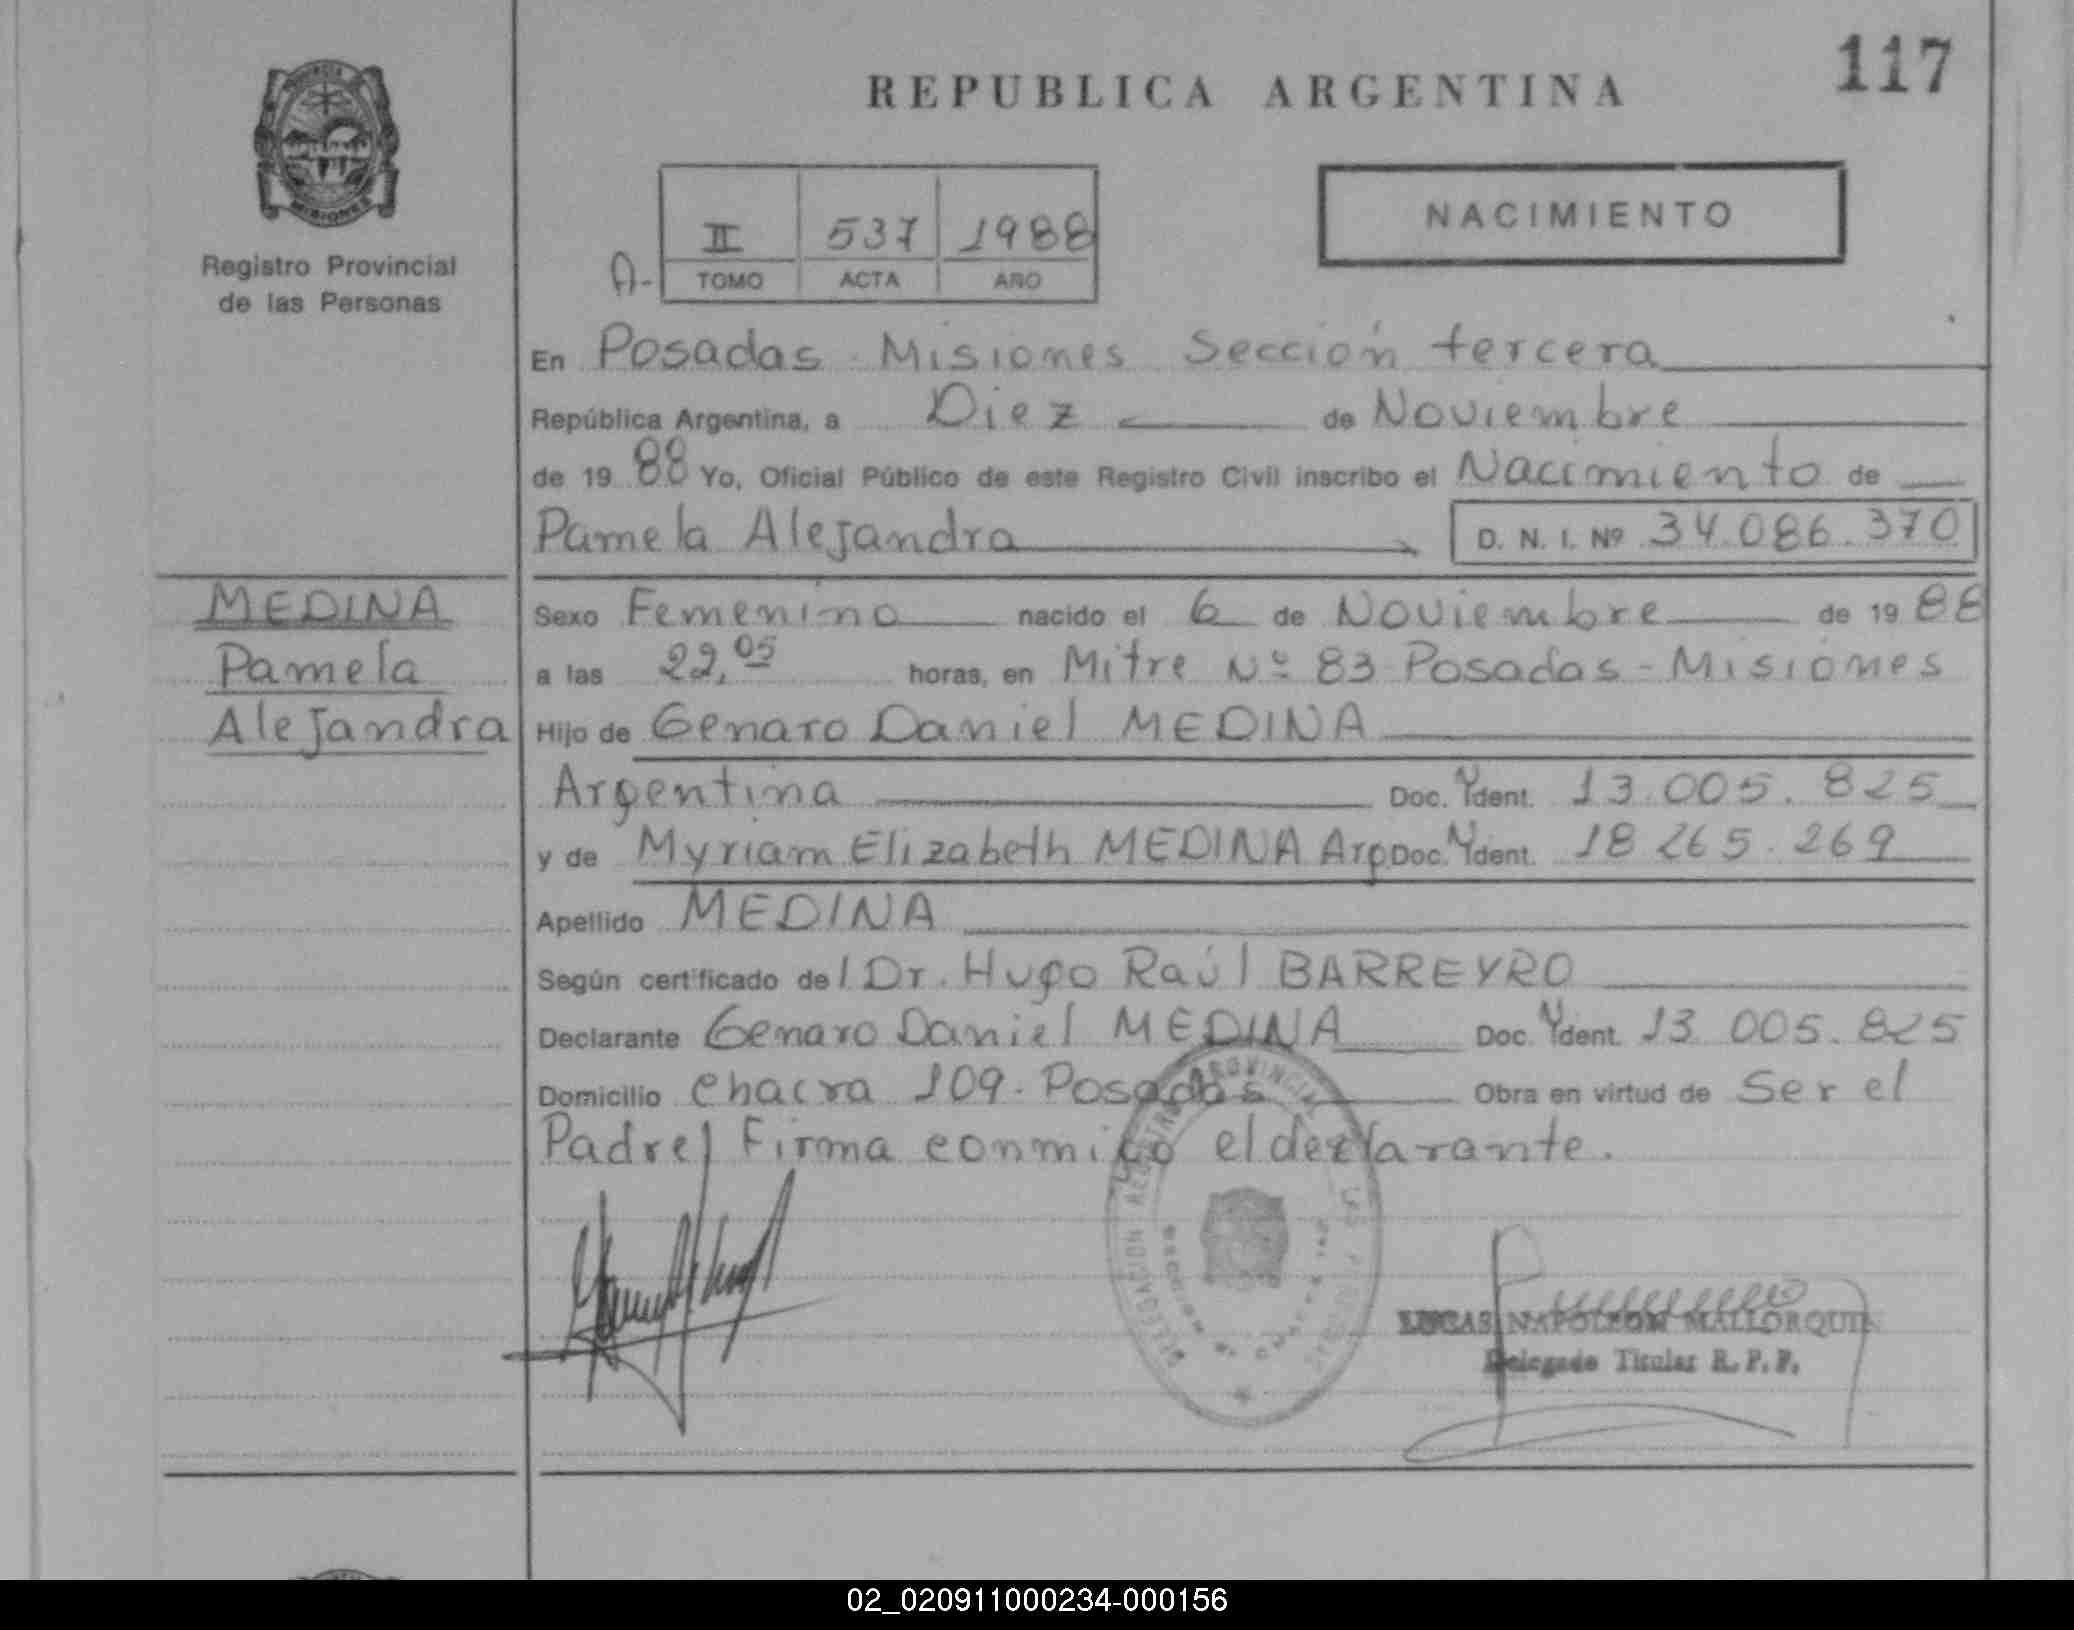 117
REPUBLICA ARGENTINA
MISIONES
Registro Provincial
de las Personas
NACIMIENTO
A- II 537 1988
TOMO ACTA AÑO
En Posadas Misiones Sección tercera
República Argentina, a Diez de Noviembre
de 19 88 Yo, Oficial Público de este Registro Civil inscribo el Nacimiento de
Pamela Alejandra D. N. I. Nº 34.086.370
MEDINA
Pamela
Alejandra
Sexo Femenino nacido el 6 de Noviembre de 19 88
a las 22,05 horas, en Mitre Nº 83 Posadas - Misiones
Hijo de Genaro Daniel MEDINA
Argentina Doc. Ydent. 13.005.825
y de Myriam Elizabeth MEDINA Arg Doc. Ydent. 18 265.269
Apellido MEDINA
Según certificado del Dr. Hugo Raúl BARREYRO
Declarante Genaro Daniel MEDINA Doc. Ydent. 13 005.825
Domicilio Chacra 109 - Posadas Obra en virtud de Ser el
Padre/ Firma conmigo el declarante.
DELEGACION REGISTRO PROVINCIAL
LUCAS NAPOLEON MALLORQUIN
Delegado Titular R. P. P.
02_020911000234-000156